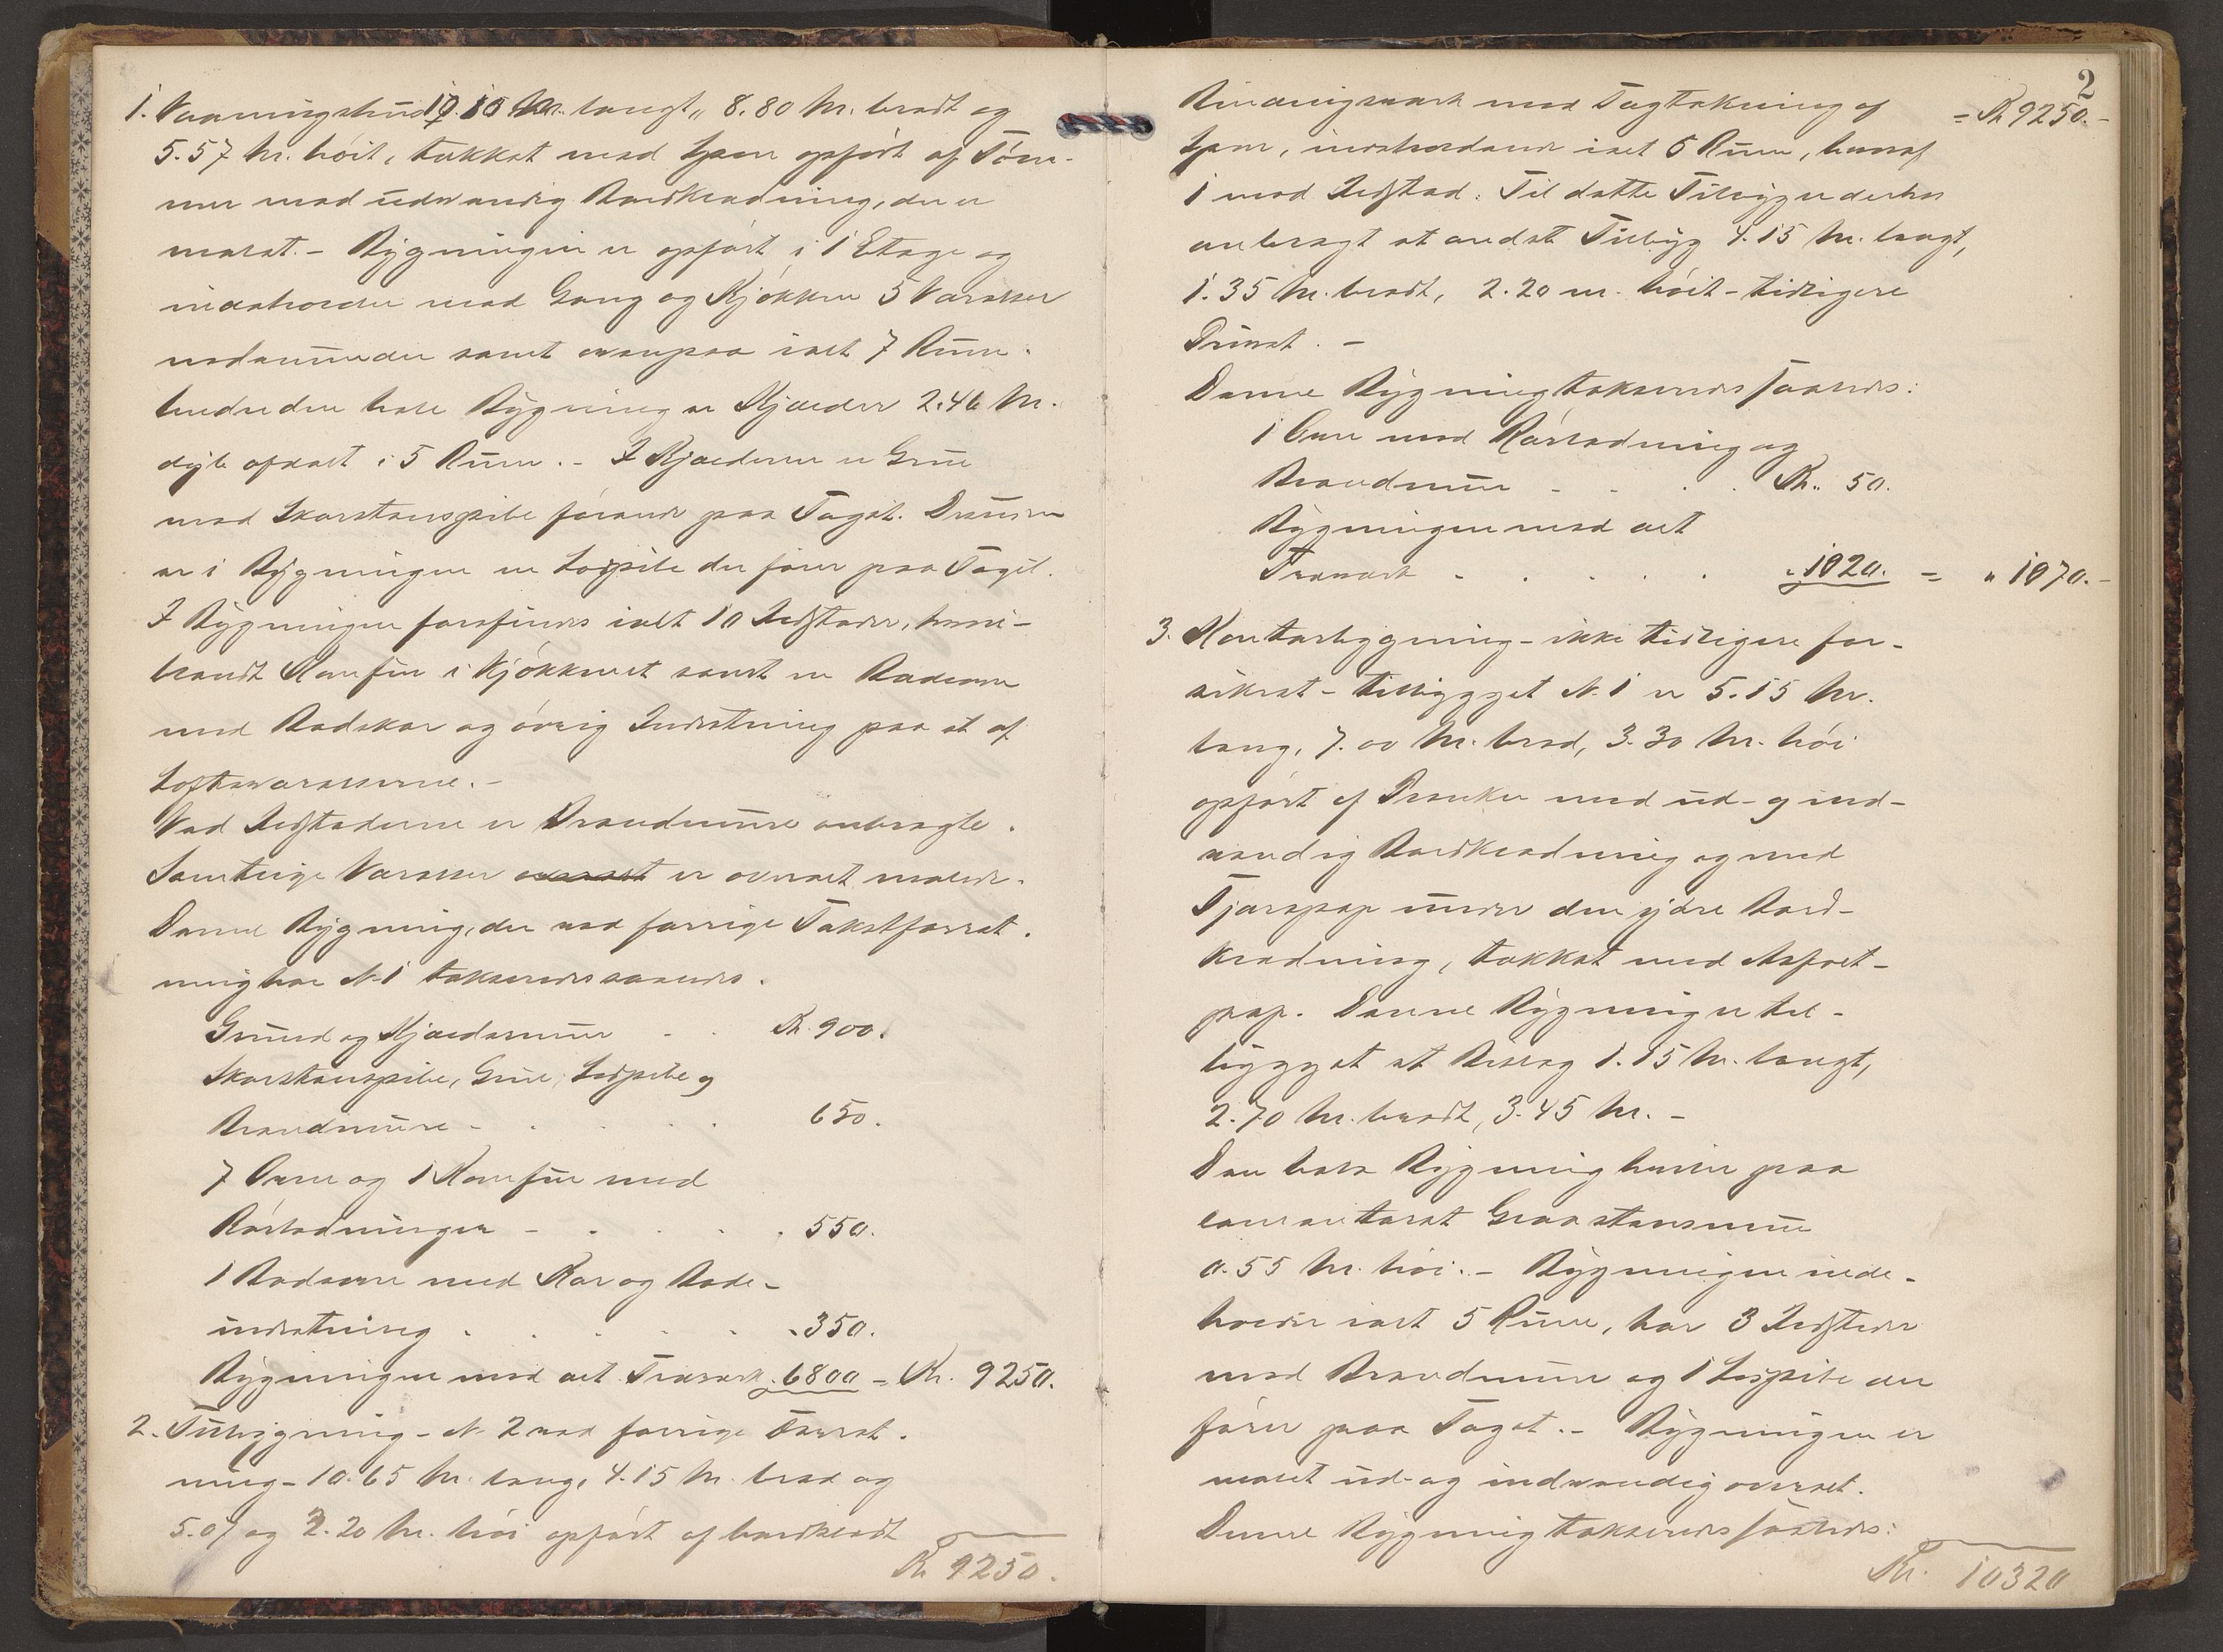 1. Vaaningshus 10.10 Mr. langt, 8.80 Mr. bredt og
5.57 Mr. høit, tækket med Spon opført af Tøm-
mer med udvendig Bordklædning, der er
malet. - Bygningen er opført i 1 Etage og
indeholder med Gang og Kjøkken 5 Værelser
nedenunder samt ovenpaa ialt 7 Rum.
Under den hele Bygning er Kjælder 2.46 Mr.
dyb afdelt i 5 Rum. - I Kjælderen er Grue
med Skorstenspibe førende paa Taget. Desuden
er i Bygningen en Løspibe der fører paa Taget.
I Bygningen forefindes ialt 10 Ildsteder, heri-
blandt Komfur i Kjøkkenet samt en Badeovn
med Badekar og øvrig Indretning paa et af
Loftsværelserne. -
Ved Ildstederne er Brandmure anbragte.
Samtlige Værelser overalt er overalt malede.
Denne Bygning, der ved forrige Takstforret-
ning har N. 1 takseredes saaledes.
Grund og Kjældermur - . Kr. 900.
Skorstenspibe, Grue, Løspibe og
Brandmure - . . . . 650.
7 Ovne og 1 Komfur med
Rørledninger - . . . . 550.
1 Badeovn med Kar og Bade-
indretning . . . . . 350.
Bygningen med alt Træværk . 6800 = Kr. 9250.
2. Tilbygning - N. 2 ved forrige Forret-
ning - 10.65 Mr. lang, 4.15 Mr. bred og
5.07 og 2.20 Mr. høi opført af bordklædt
Kr. 9250.
2
Bindingsværk med Tagtækning af = Kr. 9250.-
Spon, indeholdende ialt 5 Rum, hvoraf
1 med Ildsted. Til dette Tilbyg er derhos
anbragt et andet Tilbyg 4.15 Mr. langt,
1.35 Mr. bredt, 2.20 m. høit - tidligere
Privet. -
Denne Bygning takseredes saaledes:
1 Ovn med Rørledning og
Brandmur - . . . Kr. 50.
Bygningen med alt
Træværk . . . . . " 1020. = " 1070.-
3. Kontorbygning - ikke tidligere for-
sikret - tilbygget N. 1 er 5.15 Mr.
lang, 7.00 Mr. bred, 3.30 Mr. høi
opført af Planker med ud- og ind-
vendig Bordklædning og med
Tjærepap under den ydre Bord-
klædning, tækket med Asfalt-
pap. Denne Bygning er til-
bygget et Bislag 1.15 Mr. langt,
2.70 Mr. bredt, 3.45 Mr. -
Den hele Bygning hviler paa
cementeret Graastensmur
0.55 Mr. høi. - Bygningen inde-
holder ialt 5 Rum, har 3 Ildsteder
med Brandmure og 1 Løspibe der
fører paa Taget. - Bygningen er
malet ud- og indvendig overalt.
Denne Bygning takseredes saaledes:
Kr. 10320